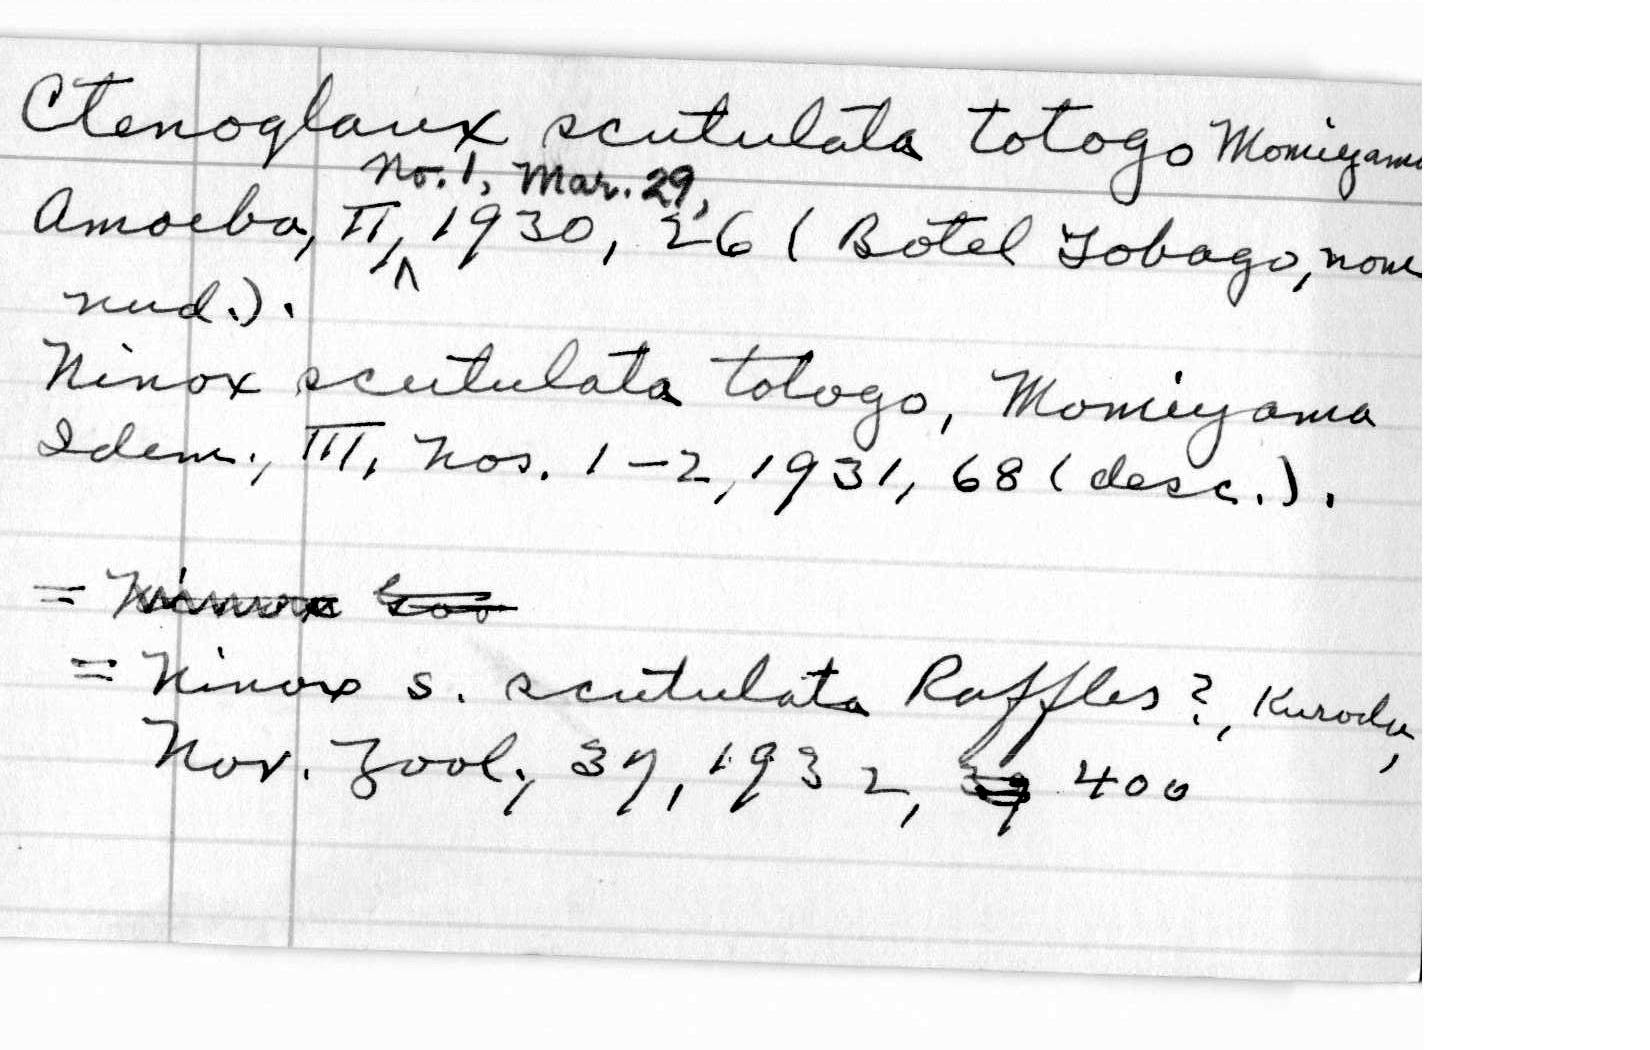 Ctenoglaux scutulata totogo Momiyama
No. 1, Mar. 29,
Amoeba, II, 1930, 26 (Botel Tobago, nom
nud.).
Ninox scutulata totogo, Momiyama
Idem., III, Nos. 1-2, 1931, 68 (desc.).
= Ninox
= Ninox s. scutulata Raffles?, Kuroda,
Nov. Zool., 37, 1932, 400